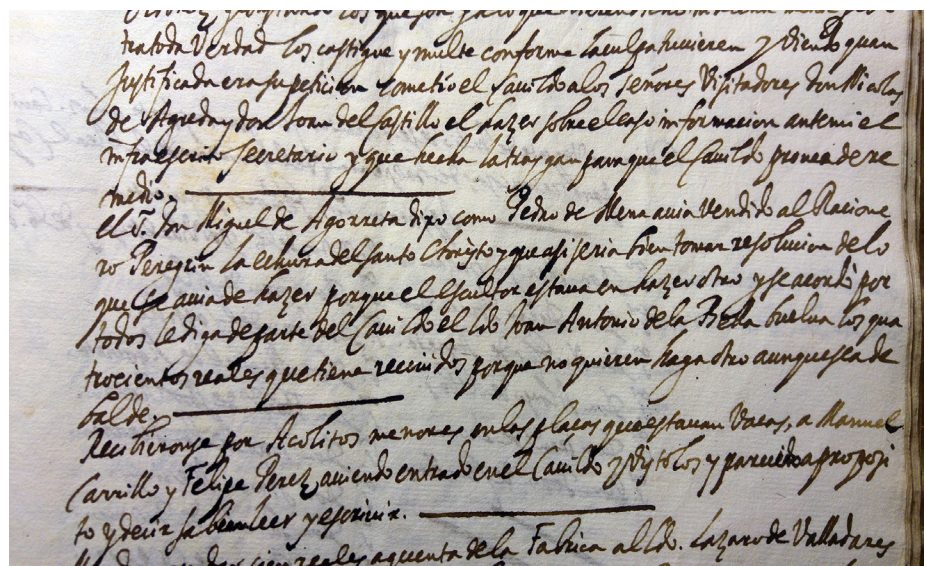 tratoda Verdad los castigue y multe conforme la culpa tuvieren y viendo quan
Justificada era su peticion cometio el Cauildo a los Señores Visitadores don Nicolas
de Agreda y don Joan del Castillo el hazer sobre el caso informacion ante mi el
infraescrito Secretario y que hecha la traygan para que el Cauildo prouea de re
medio.
el S. don Miguel de Agorreta dixo como Pedro de Mena auia Vendido al Racione
ro Peregrin la echura del santo Christo y que asi seria bien tomar resolucion de lo
que se auia de hazer porque el Escultor estaua en hazer otro y se acordò por
todos le diga de parte del Cauildo el Ldo Joan Antonio de la Bella buelua los qua
trocientos reales que tiene receuidos porque no quieren haga otro aunque sea de
balde.
Recibieronse por Acolitos menores en las plaças que estauan Vacas, a Manuel
Carrillo y Felipe Perez auiendo entrado en el Cauildo y Vistolos y parecido a proposi
to y decir saben leer y escriuir.
cien reales a quenta de la Fabrica al Ldo. Lazaro de Valladares